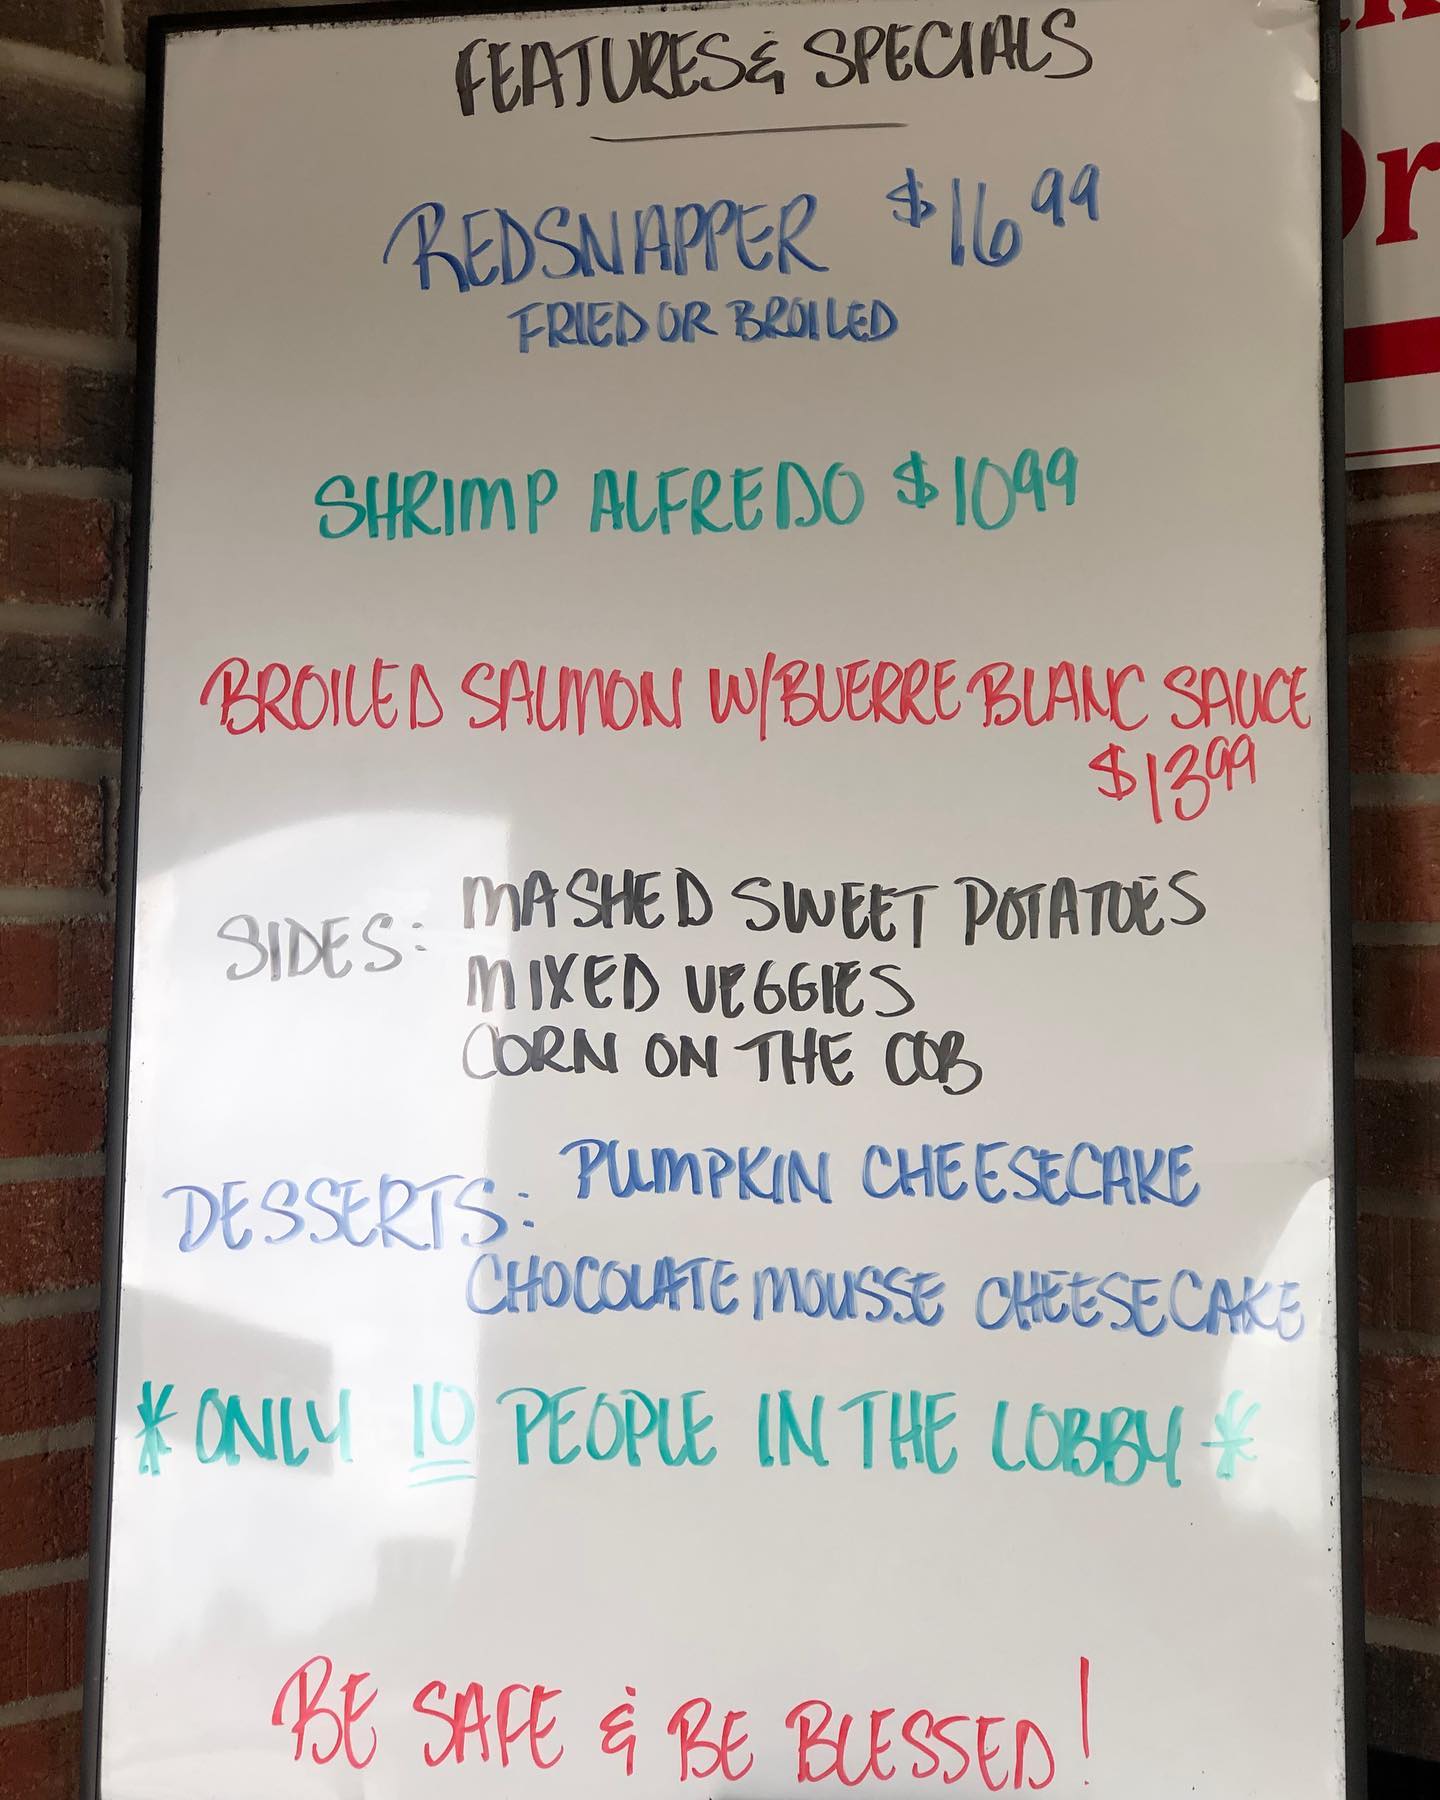 FEATURES & SPECIALS
REDSNAPPER $16.99
FRIED OR BROILED
SHRIMP ALFREDO $1099
BROILED SALMON W/BUERRE BLANC SAUCE
$1399
SIDES: MASHED SWEET POTATOES
MIXED VEGGIES
CORN ON THE COB
DESSERTS: PUMPKIN CHEESECAKE
CHOCOLATE MOUSSE CHEESECAKE
* ONLY 10 PEOPLE IN THE LOBBY *
BE SAFE & BE BLESSED!